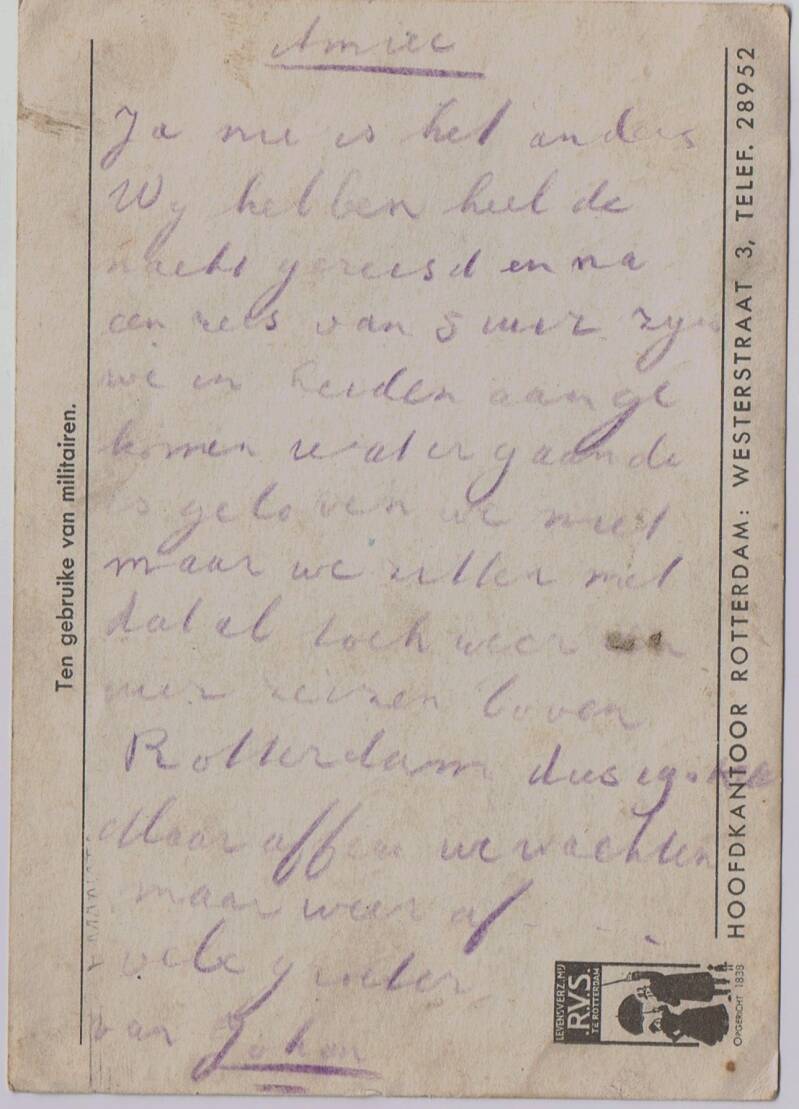 Ja nu is het anders
Wy hebben heel de
nacht gereisd en na
een reis van 5 uur zyn
we in Leiden aange
komen wat er gaande
is geloven we niet
maar we zitten met
dat al toch weer een
uur reizen boven
Rotterdam dus
Maar affein we wachten
maar weer af . . .
vele groeten
van Johan
Ten gebruike van militairen.
HOOFDKANTOOR ROTTERDAM: WESTERSTRAAT 3, TELEF. 28952
LEVENSVERZ.MIJ
R.V.S.
TE ROTTERDAM
OPGERICHT 1838